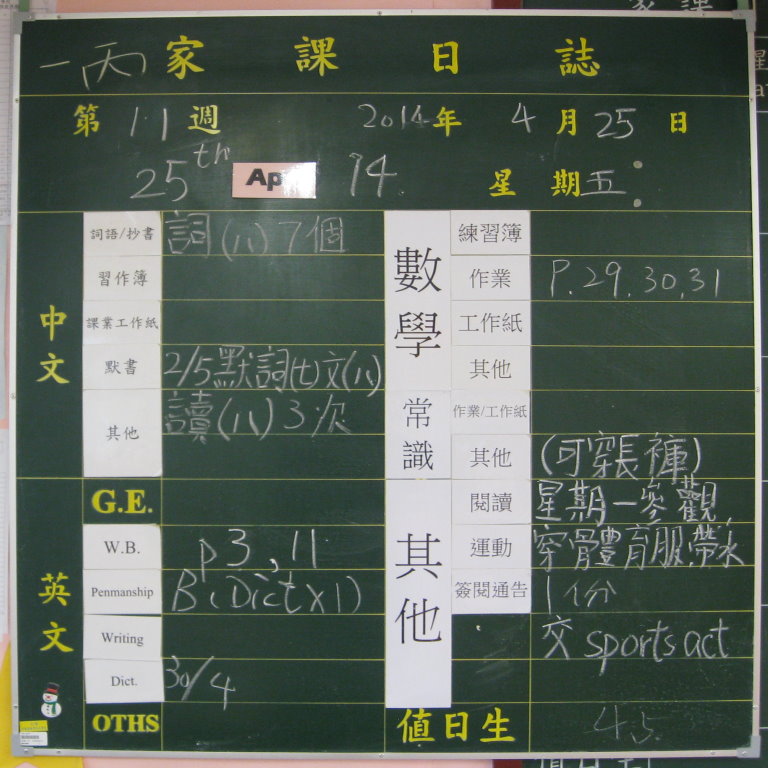 一丙 家課日誌
第 11 週 2014年 4月25日
25th Ap 14. 星期五
中文
詞語/抄書 詞(八)7個
習作簿
課業工作紙
默書 2/5默詞(七)文(八)
其他 讀(八)3次
英文
G.E.
W.B. p 3, 11
Penmanship B(Dict x 1)
Writing
Dict. 30/4
OTHS
數學
練習簿
作業 P.29,30,31
工作紙
其他
常識
作業/工作紙
其他 (可穿長褲)
其他
閱讀 星期一參觀,
運動 穿體育服,帶水
簽閱通告 1份
交 sports act
值日生 4,5